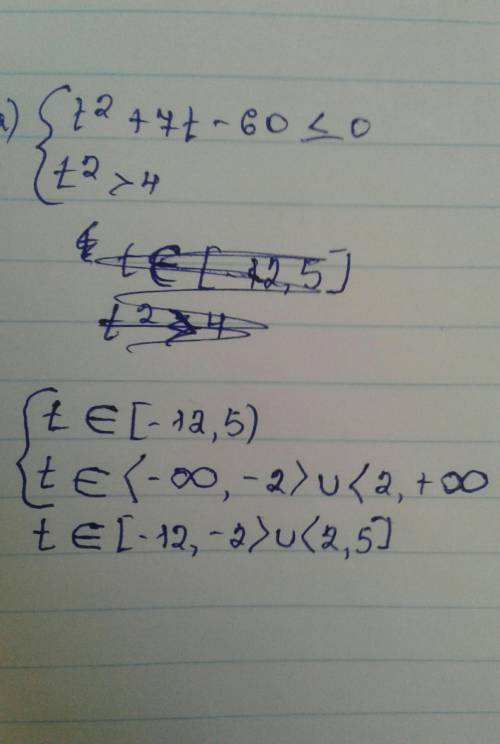 a) { t² + 7t - 60 ≤ 0
t² > 4
t ∈ [-12,5]
t² > 4
{ t ∈ [-12,5)
t ∈ ⟨-∞, -2⟩ ∪ ⟨2, +∞
t ∈ [-12, -2⟩ ∪ ⟨2, 5]